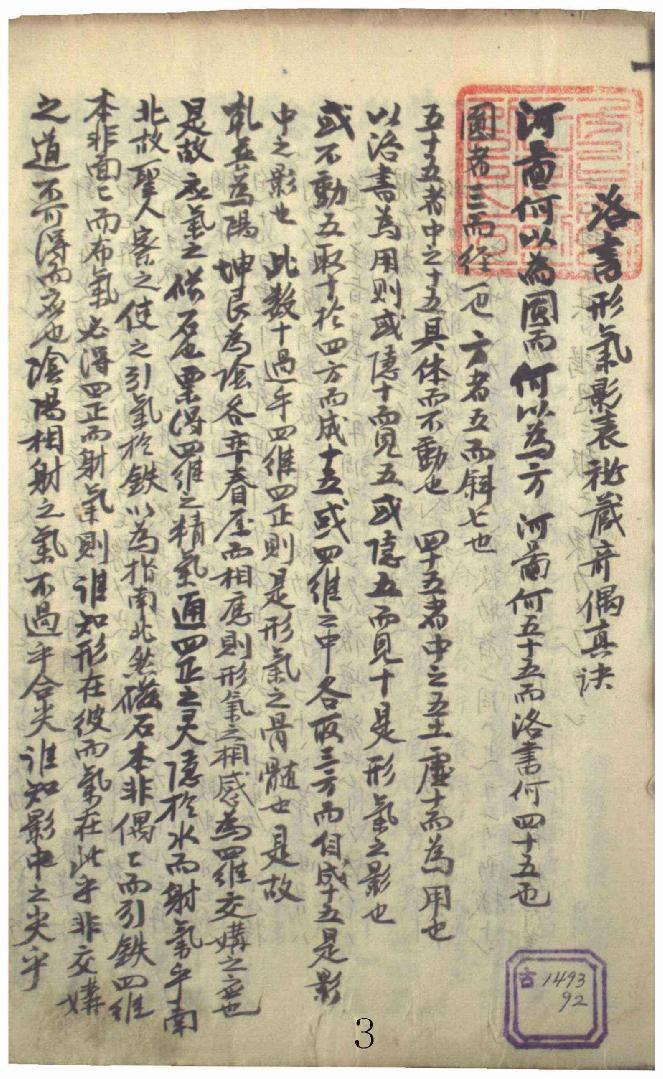 洛書形氣影裹祕藏奇偶真决
河圖何以為圓而何以為方 河圖何五十五而洛書何四十五也
圓者三而徑一也 方者五而斜七也
五十五者中之十五具体而不動也 四十五者中之五土虛十而為用也
以洛書為用則或隱十而見五或隱五而見十是形氣之影也
或不動五取十於四方而成十五或四維之中各取三方而自成十五是影
中之影也 此数十過乎四維四正則是形氣之骨髓也是故
乹巽為陽坤艮為陰各弃眷屋而相應則形氣之相感為四維交媾之應也
是故應氣之磁石也稟得四維之精氣通四正之灵隱於水而射氣乎南
北故聖人察之使之引氣於鉄以為指南北然磁石本非偶〻而引鉄四維
本非面〻而布氣必得四正而射氣則誰知形在彼而氣在此乎非交媾
之道不可得而应也陰陽相射之氣不過乎合尖誰知影中之尖乎
古 1493
92
3